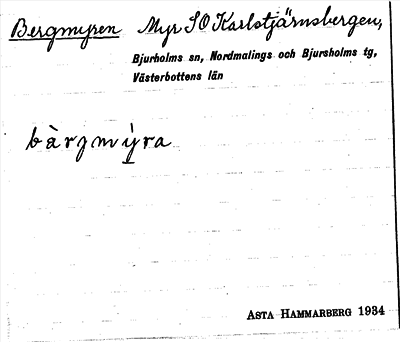 Bergmyren Myr SO Karlstjärnsbergen,
Bjurholms sn, Nordmalings och Bjursholms tg,
Västerbottens län
bàrgmỳra
ASTA HAMMARBERG 1934